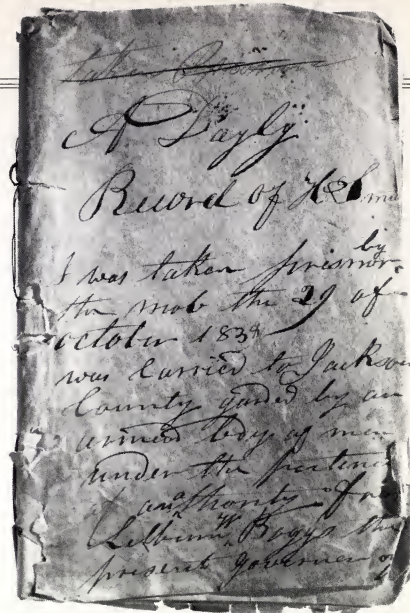 A Dayly
Record of H S
I was taken prisnor by
the mob the 29 of
october 1838
was carried to Jackson
County garded by an
armed body of men
under the pretence
of authority from
Lilburn W Boggs the
present governer of